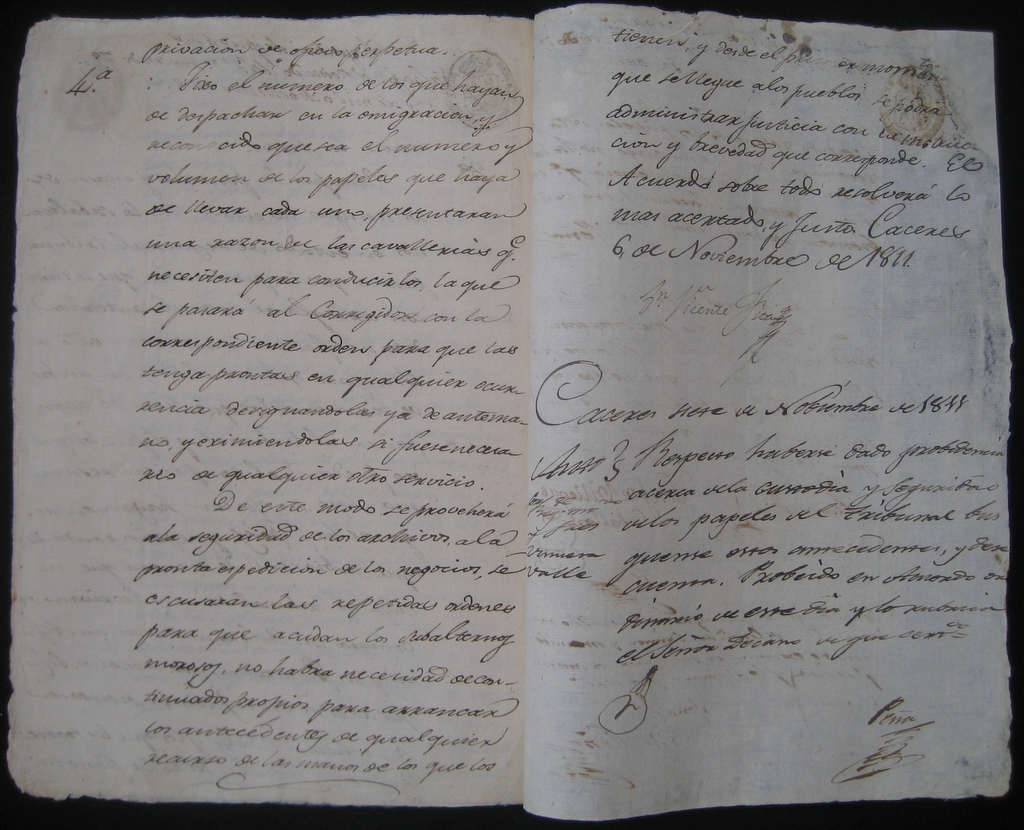 privacion de oficio perpetua.
4.ª
: Fixo el numero de los que hayan
de despachar en la emigracion, y
reconocido que sea el numero y
volumen de los papeles que haya
de llevar cada uno, presentaran
una razon de las cavallerias q.e
necesiten para conducirlos, la que
se pasará al Corregidor con la
correspondiente orden para que las
tenga prontas en qualquier ocur-
rencia, designandolas ya de antema-
no, y eximiendolas si fuese necesa-
rio de qualquier otro servicio.
De este modo se proveherá
a la seguridad de los archivos, a la
pronta espedicion de los negocios, se
escusaran las repetidas ordenes
para que acudan los subalternos
morosos, no habra necesidad de con-
tinuados propios para arrancar
los antecedentes de qualquier
recurso de las manos de los que los
tienen, y desde el momento
que se llegue a los pueblos se podra
administrar justicia con la
cion y brevedad que corresponde. El
Acuerdo sobre todo resolverá lo
mas acertado, y Justo. Caceres
6, de Noviembre de 1811.
Vicente
Caceres siete de Nobiembre de 1811
Respecto haberse dado probidencia
acerca de la custodia y seguridad
de los papeles del tribunal bus
quense estos antecedentes, y dese
cuenta. Probeido en Acuerdo or
dinario de este dia y lo rubrica
el Señor Decano de que certº
Valle
Peña